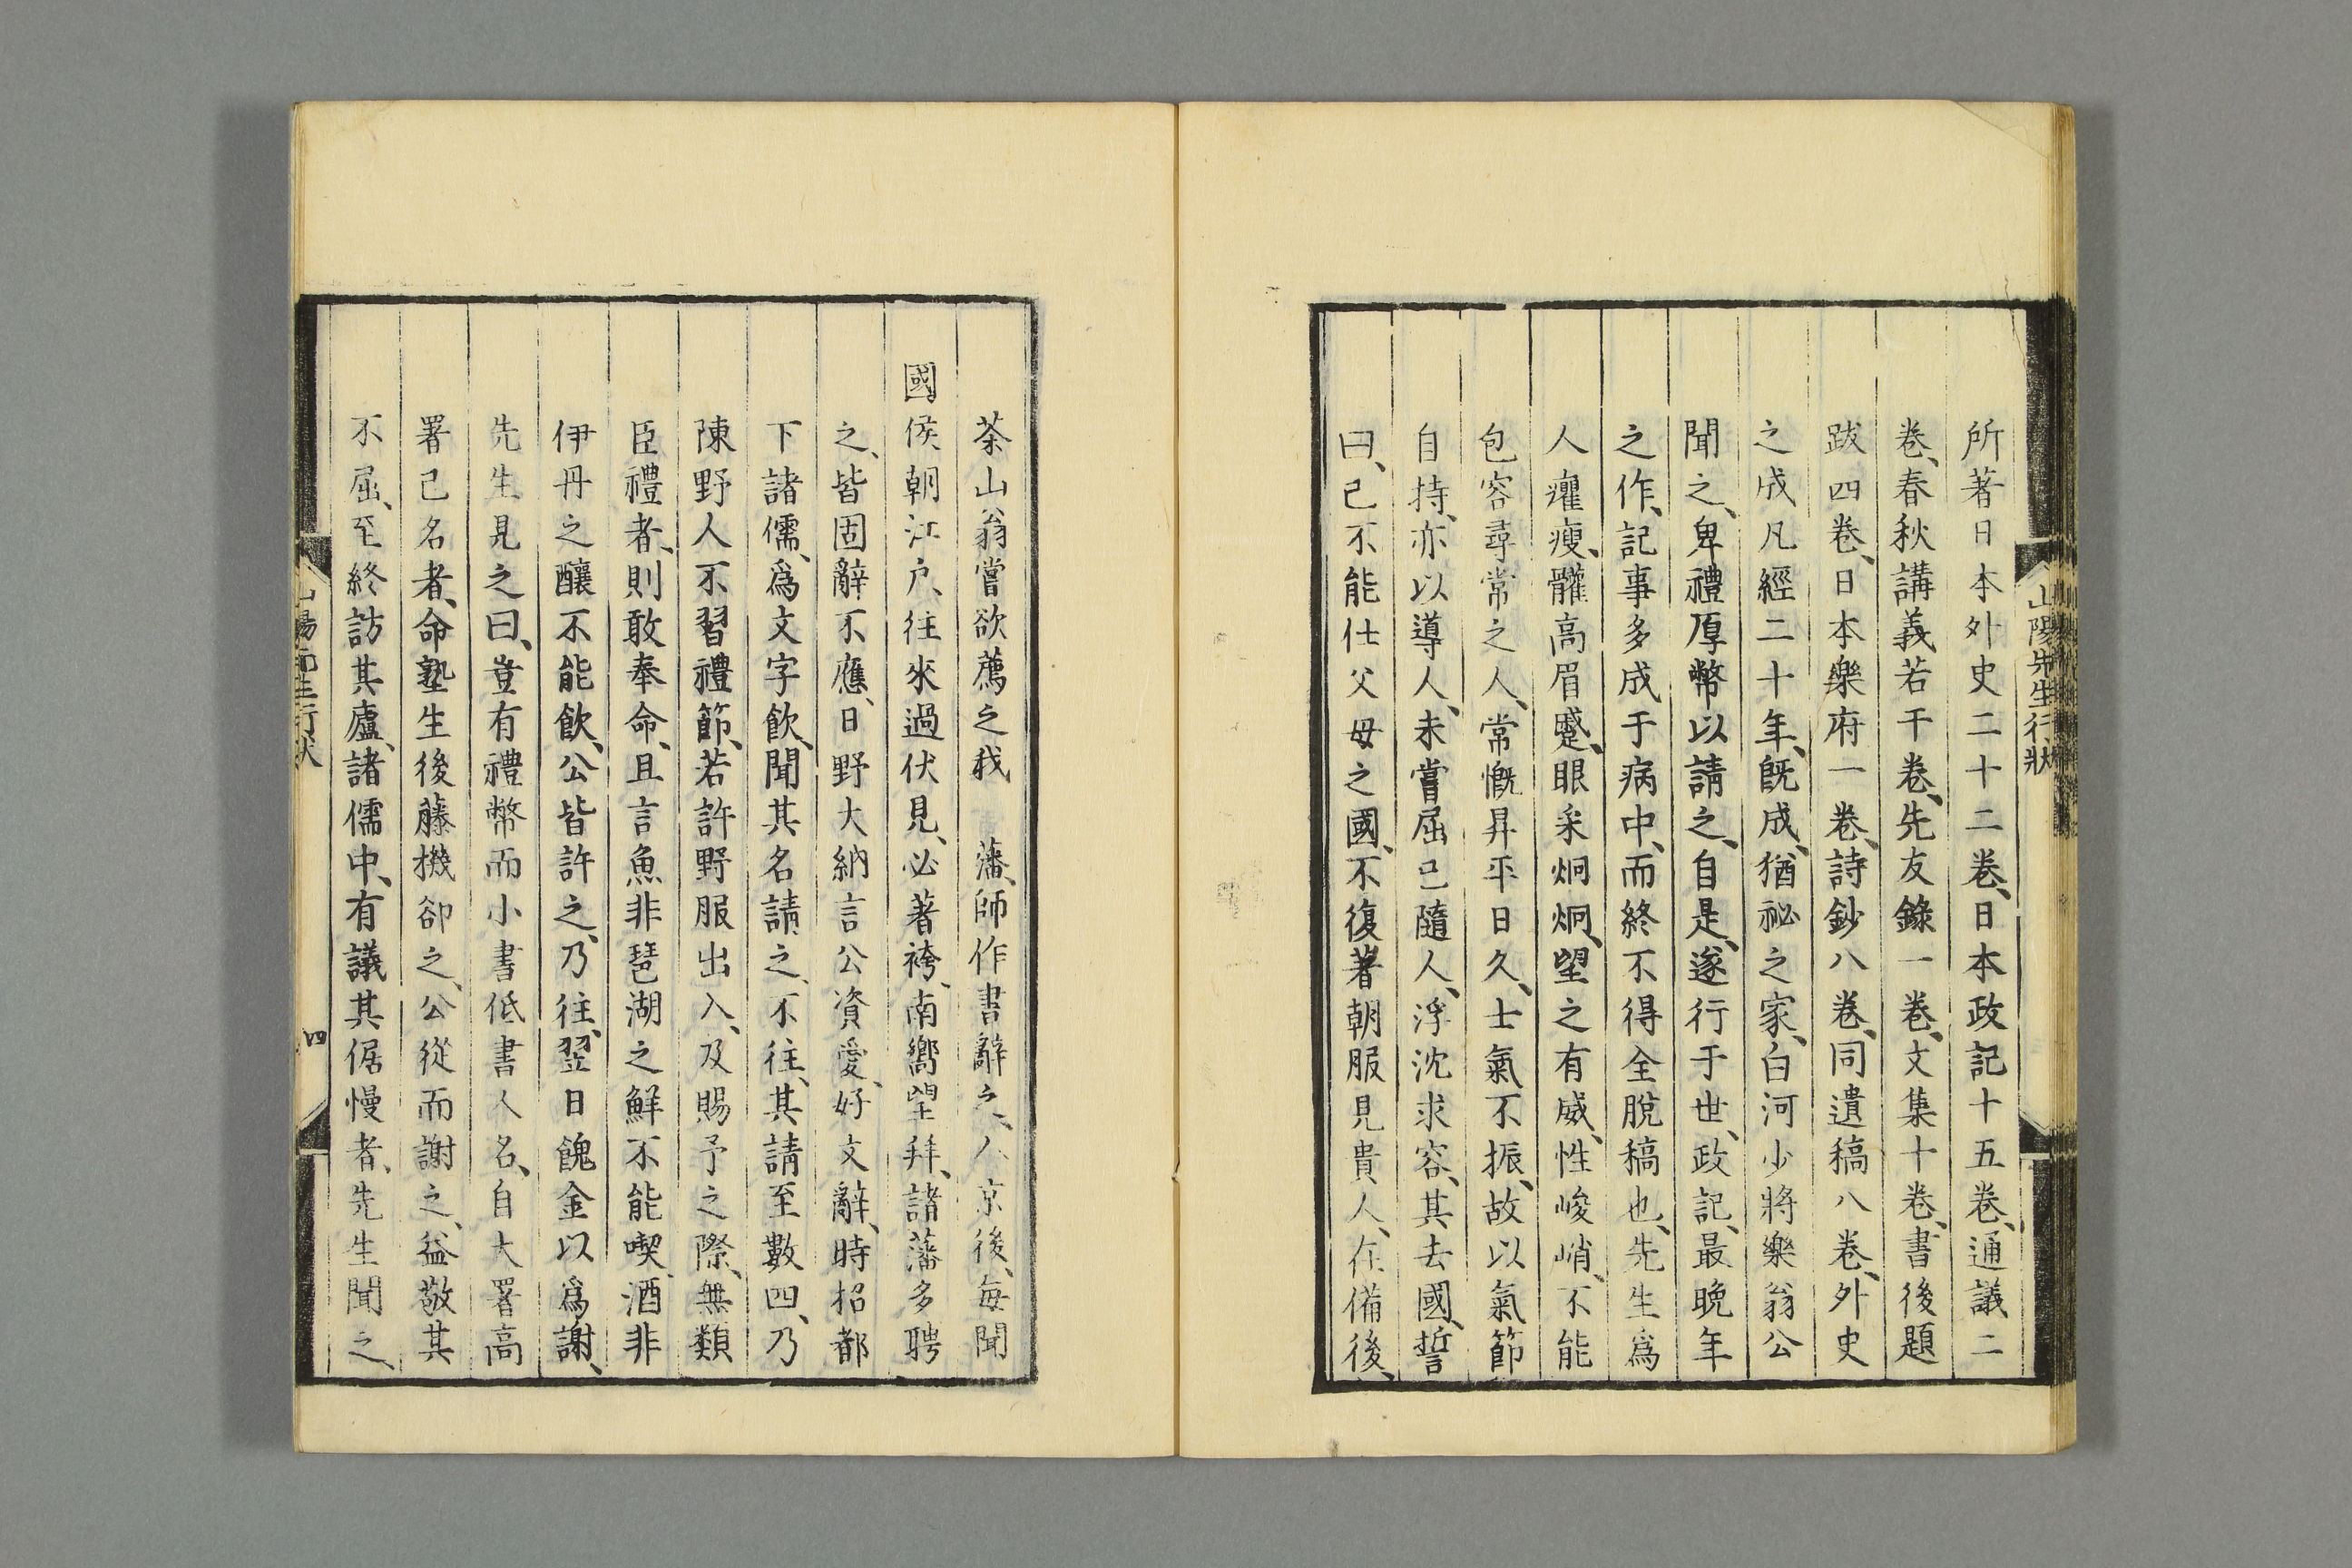 山陽先生行狀
所著日本外史二十二卷、日本政記十五卷、通議二
卷、春秋講義若干卷、先友錄一卷、文集十卷、書後題
跋四卷、日本樂府一卷、詩鈔八卷、同遺稿八卷、外史
之成凡經二十年、既成、猶祕之家、白河少將樂翁公
聞之、卑禮厚幣以請之、自是、遂行于世、政記、最晚年
之作、記事多成于病中、而終不得全脫稿也、先生爲
人癯瘦、髏高眉蹙、眼采炯炯、望之有威、性峻峭、不能
包容尋常之人、常慨昇平日久、士氣不振、故以氣節
自持、亦以導人、未嘗屈己隨人、浮沈求容、其去國、誓
曰、己不能仕父母之國、不復著朝服見貴人、在備後、
茶山翁嘗欲薦之我 藩、師作書辭之、入京後、每聞
國侯朝江戶、往來過伏見、必著袴、南嚮望拜、諸藩多聘
之、皆固辭不應、日野大納言公資愛、好文辭、時招都
下諸儒、爲文字飲、聞其名請之、不往、其請至數四、乃
陳野人不習禮節、若許野服出入、及賜予之際、無類
臣禮者、則敢奉命、且言魚非琶湖之鮮不能喫、酒非
伊丹之釀不能飲、公皆許之、乃往、翌日餽金以爲謝、
先生見之曰、豈有禮幣而小書低書人名、自大署高
署己名者、命塾生後藤機卻之、公從而謝之、益敬其
不屈、至終訪其廬、諸儒中、有議其倨慢者、先生聞之、
山陽先生行狀
四